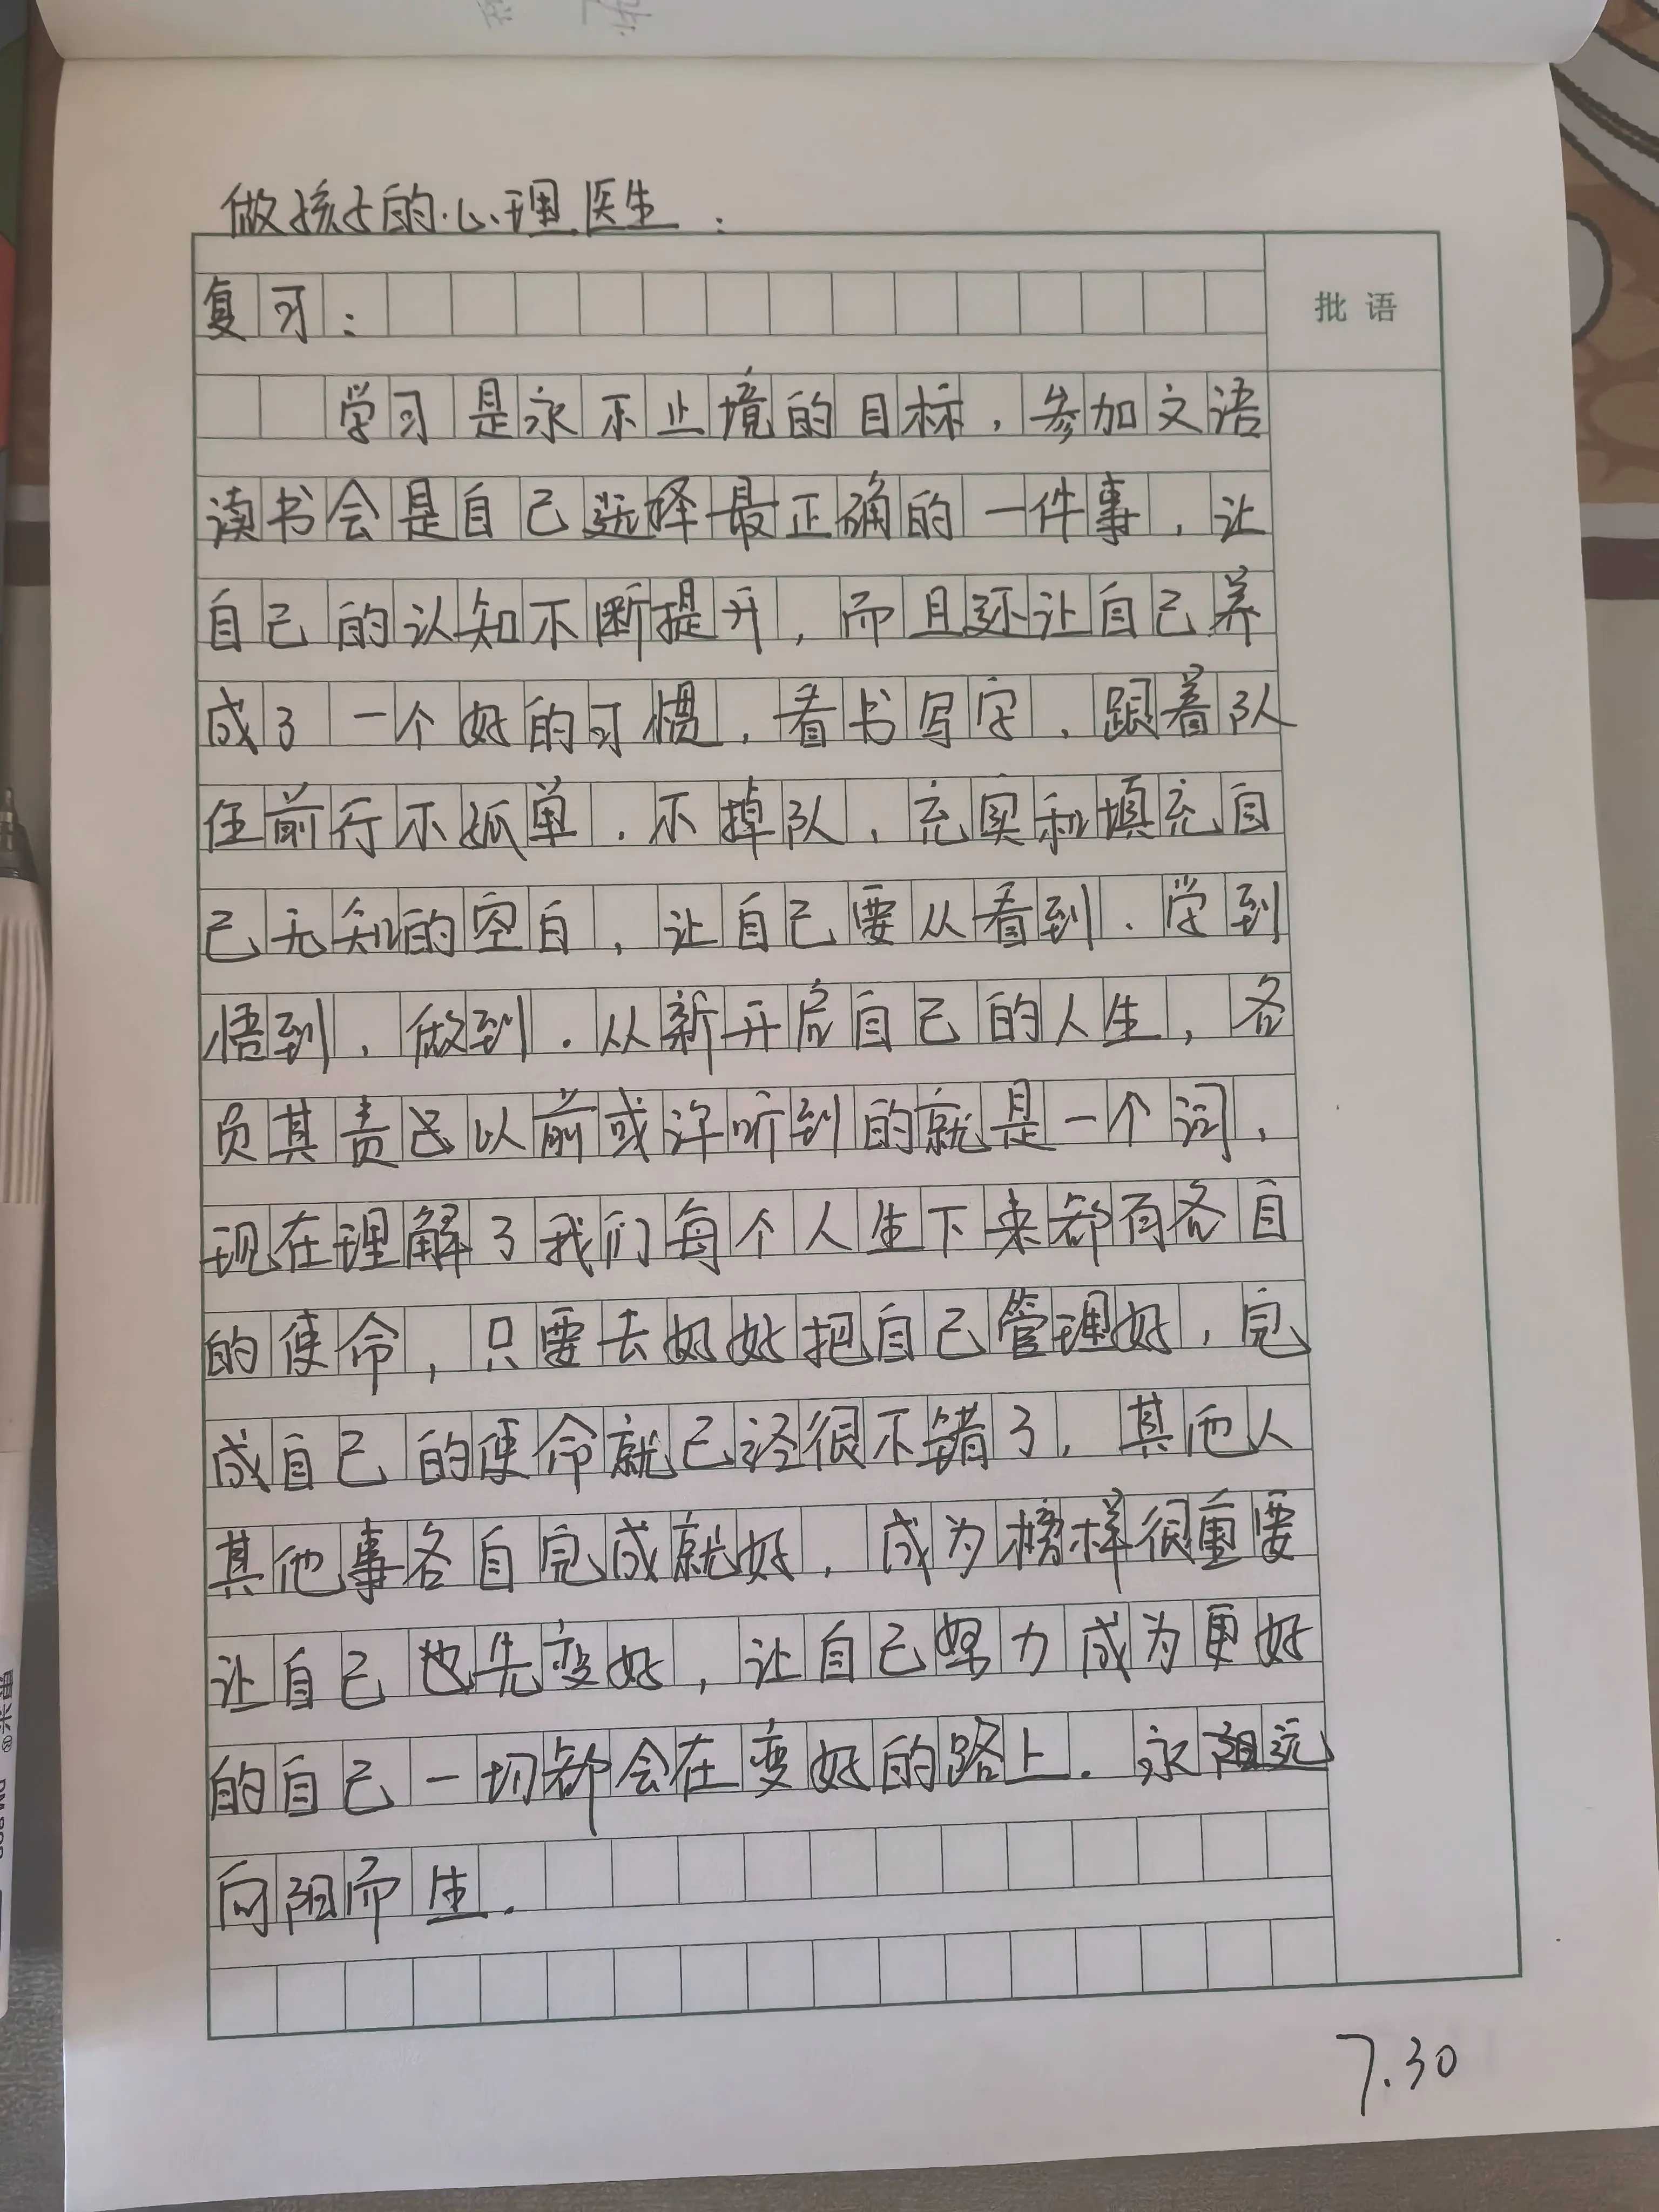 做孩子的心理医生：
批语
复习：
学习是永不止境的目标，参加文语
读书会是自己选择最正确的一件事，让
自己的认知不断提升，而且还让自己养
成了一个好的习惯，看书写字，跟着队
伍前行不孤单，不掉队，充实和填充自
己无知的空白，让自己要从看到．学到
悟到，做到．从新开启自己的人生，各
负其责这以前或许听到的就是一个词，
现在理解了我们每个人生下来都有各自
的使命，只要去好好把自己管理好，完
成自己的使命就已经很不错了，其他人
其他事各自完成就好，成为榜样很重要
让自己也先变好，让自己努力成为更好
的自己一切都会在变好的路上．永远
向阳而生．
7.30